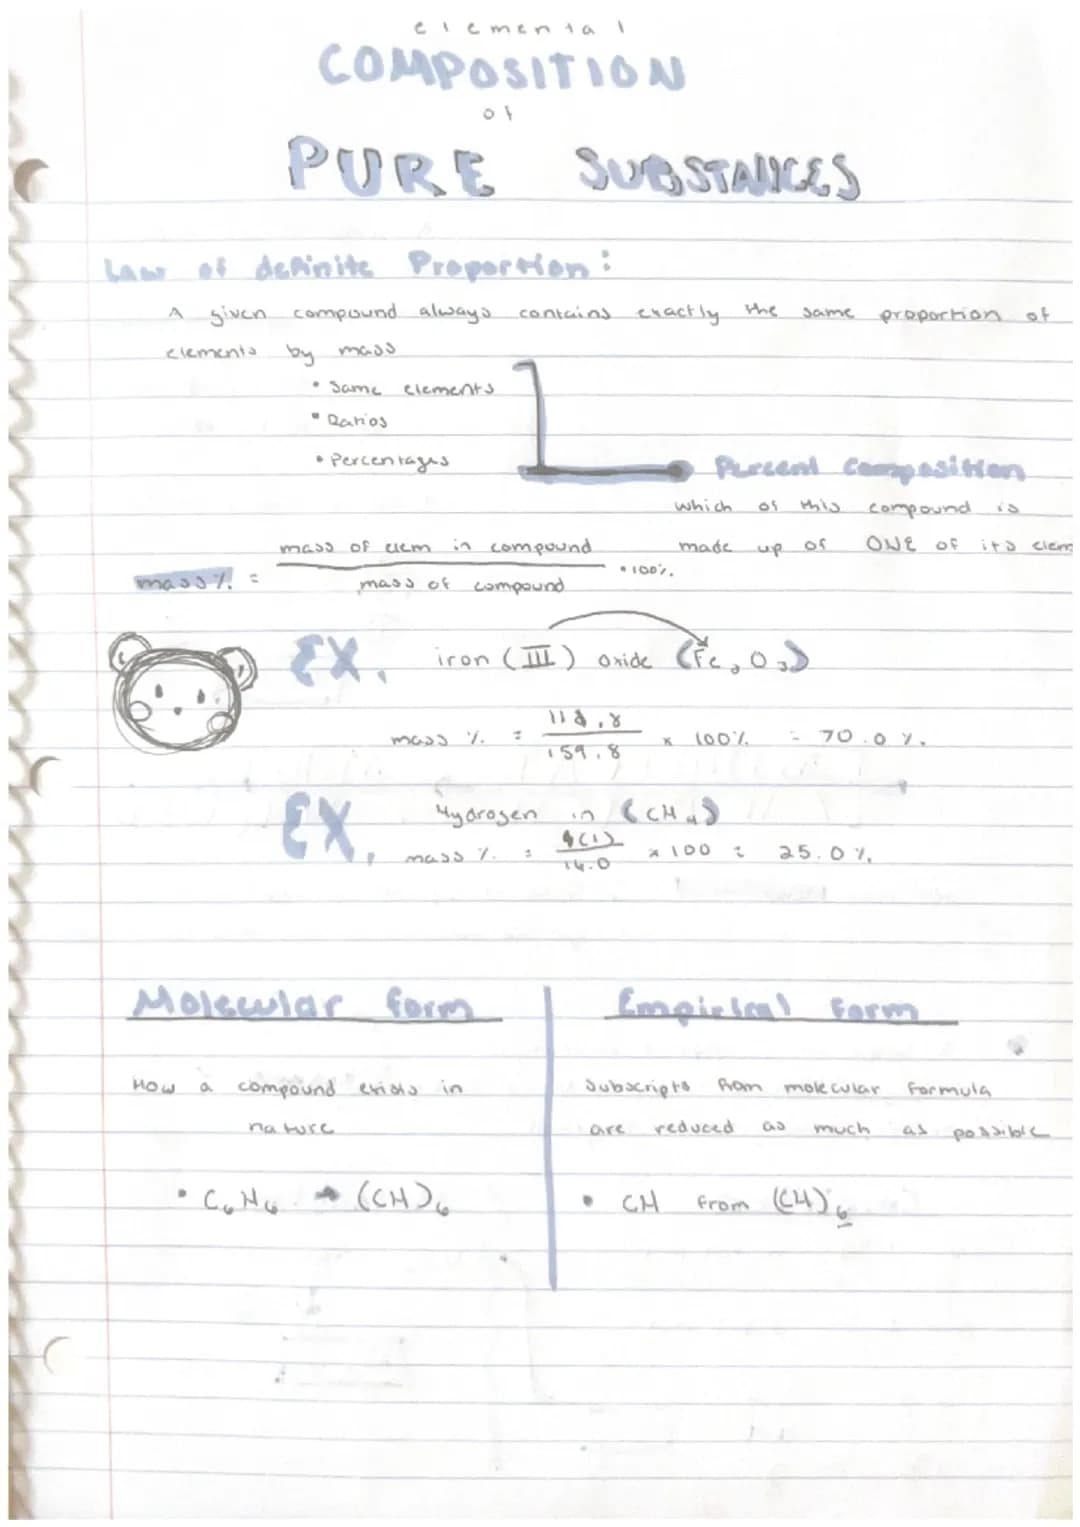 elemental
COMPOSITION
of
PURE SUBSTANCES
Law of definite Proportion:
A given compound always contains exactly the same proportion of
elements by mass
• Same elements
• Ratios
• Percentages
Percent Composition
which of this compound is
made up of ONE of its elem
mass % = mass of elem in compound / mass of compound • 100%
EX. iron (III) oxide (Fe2O3)
mass % = 111.8 / 159.8 x 100% = 70.0 %.
EX. Hydrogen in (CH4)
mass % = 4(1) / 16.0 x 100 = 25.0 %.
Molecular form
How a compound exists in
nature
• C6H6 → (CH)6
Empirical Form
Subscripts from molecular formula
are reduced as much as possible
• CH from (CH)6